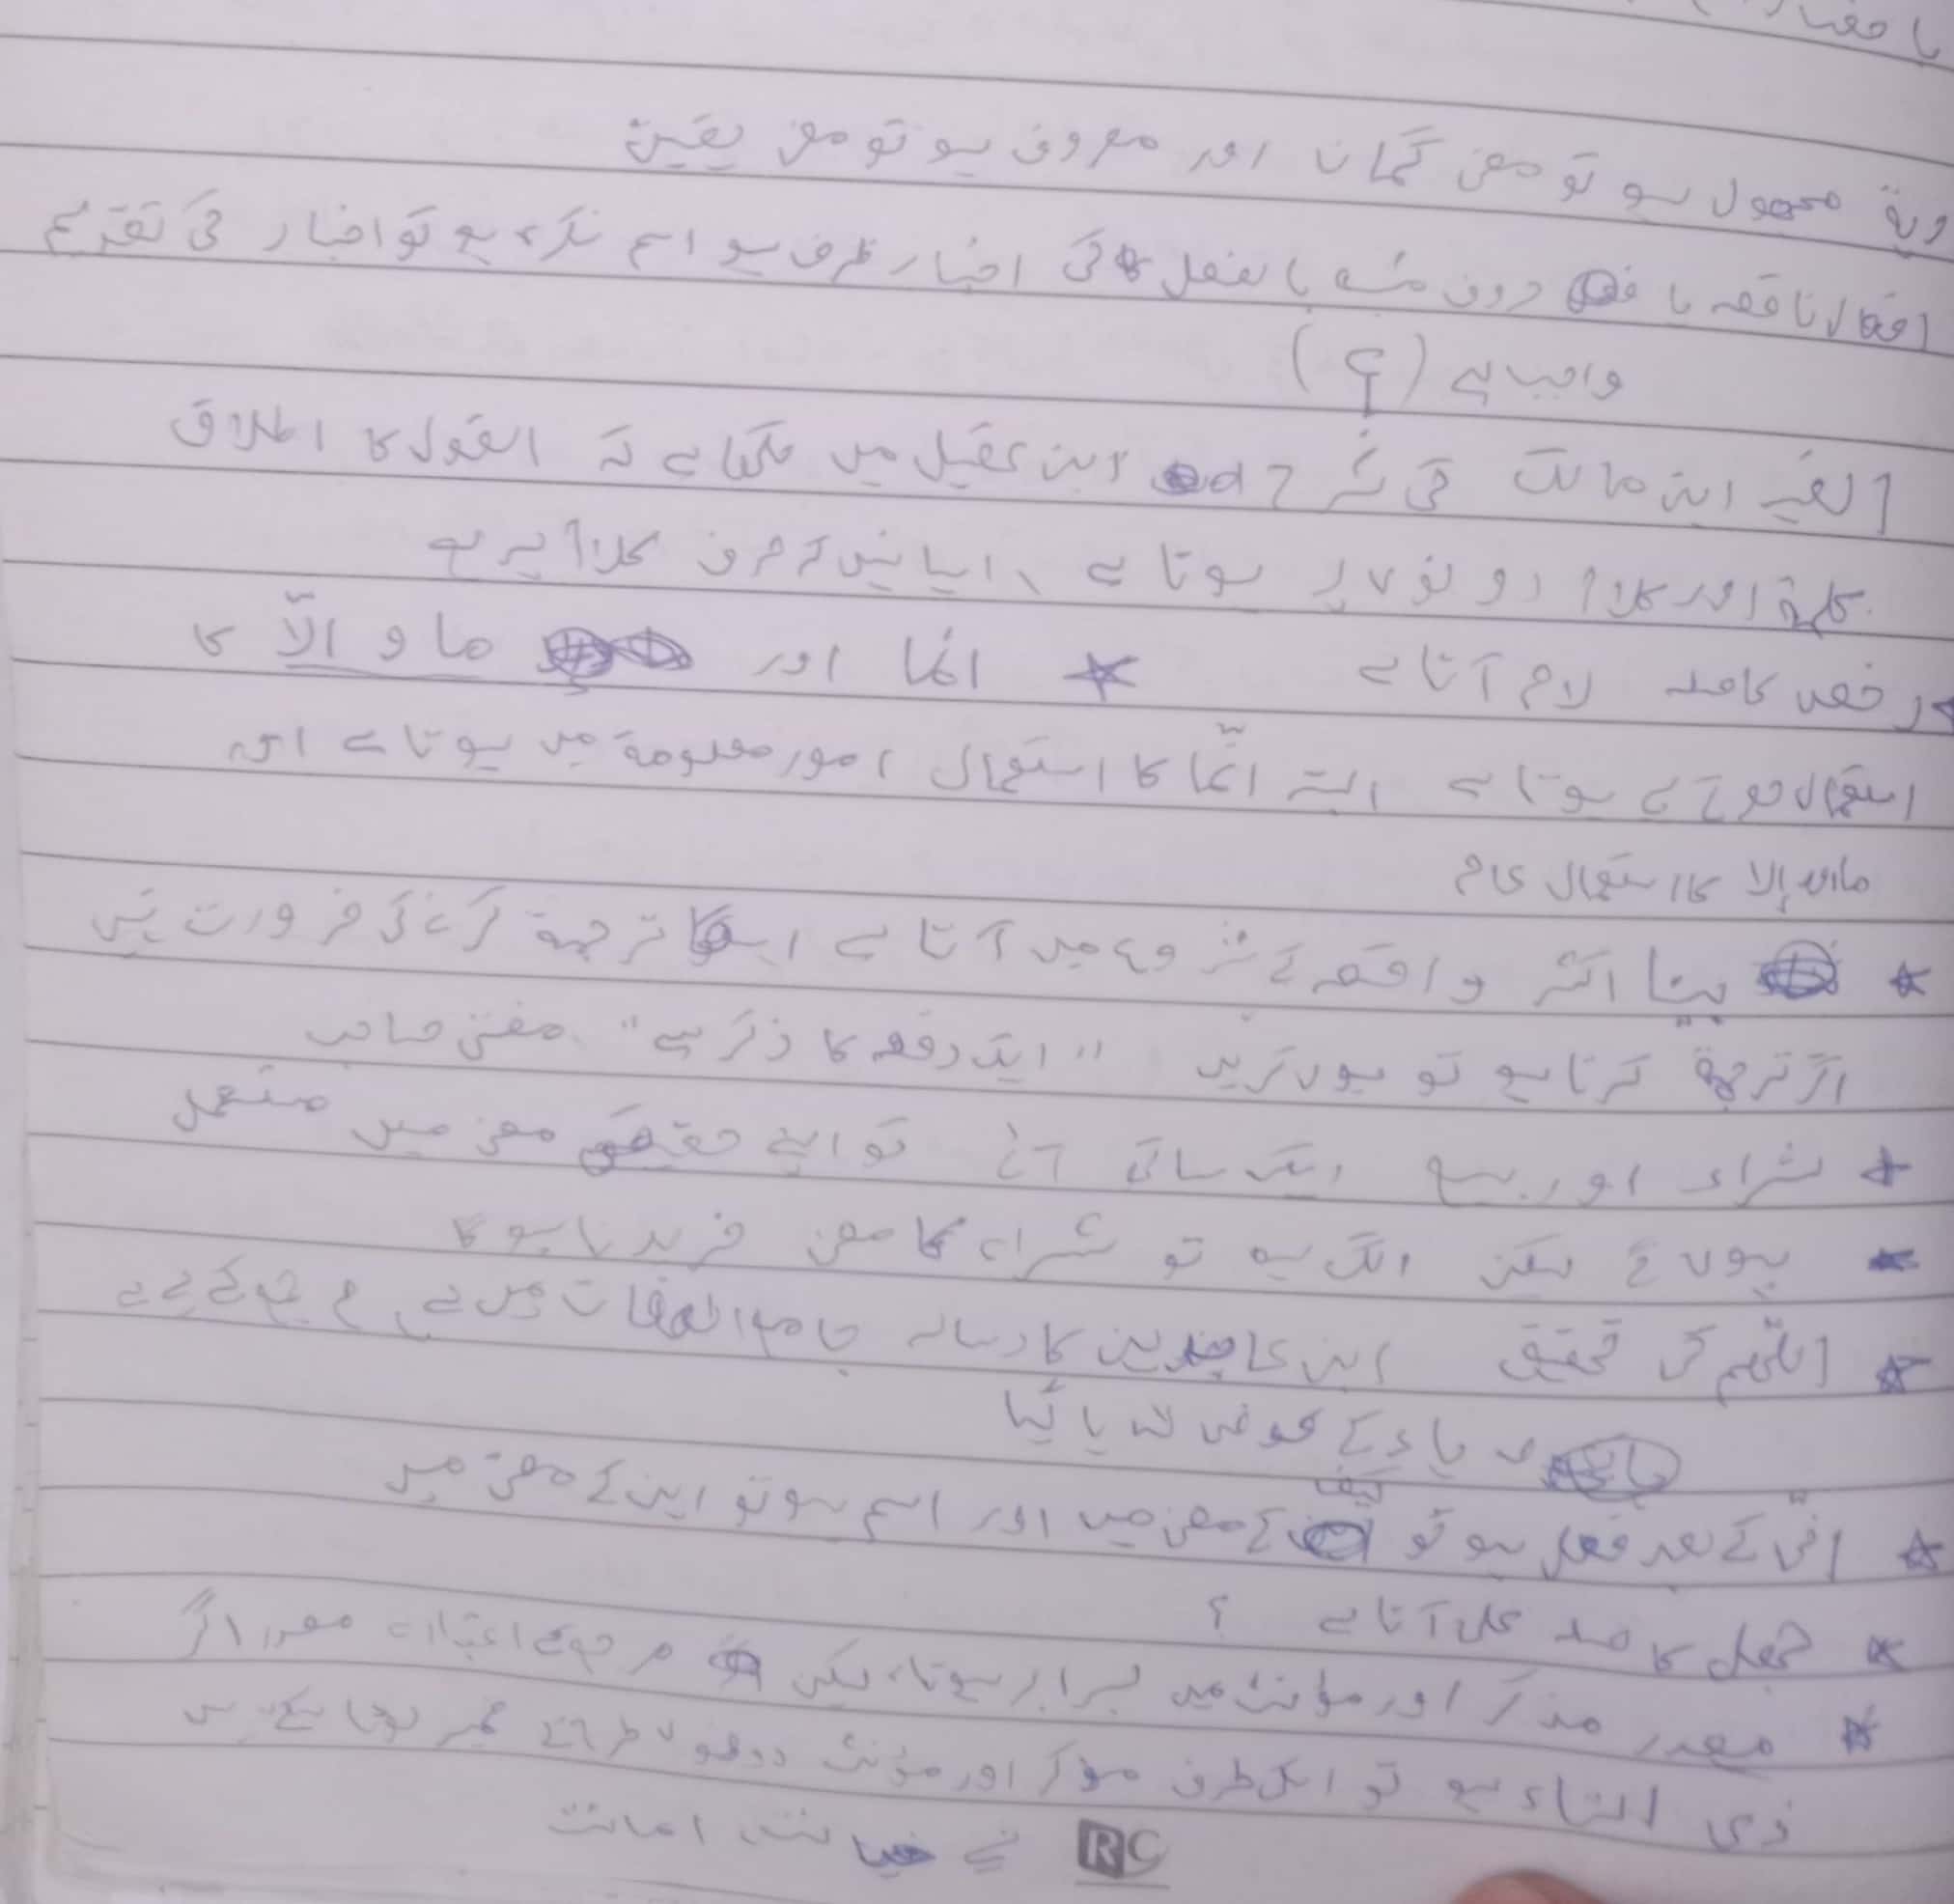 رویۃ مجہول ہو تو معنی گمان اور معروف ہو تو معنی یقین
افعال ناقصہ یا حروف مشبہ بالفعل کی اخبار ظرف ہو اسم نکرہ ہو تو اخبار کی تقدیم
واجب ہے (؟)
الفیہ ابن مالک کی شرح ابن عقیل میں لکھا ہے کہ القول کا اطلاق
کلمۃ اور کلام دونوں پر ہوتا ہے، ایسا نہیں کہ صرف کلام پر ہے
رخصہ کا صلہ لام آتا ہے ★ انما اور ما و الّا کا
استعمال ہوتا ہے البتہ انّما کا استعمال امور معلومۃ میں ہوتا ہے اور
ما اور إلا کا استعمال عام
★ بینا اکثر واقعہ کے شروع میں آتا ہے اسکا ترجمۃ کرنے کی ضرورت نہیں
اگر ترجمۃ کرنا ہو تو یوں کریں "ایک دفعہ کا ذکر ہے" مفتی صاحب
★ شراء اور بیع ایک ساتھ آئے تو اپنے حقیقی معنی میں مستعمل
★ ہوں گے لیکن الگ ہو تو شراء کا معنی خریدنا ہوگا
★ اللّٰہم کی تحقیق ابن عابدین کا رسالہ میں ہے
یاء کے عوض لایا گیا
★ انّی کے بعد فعل ہو تو کیف کے معنی میں اور اسم ہو تو این کے معنی میں
★ جعل کا صلہ علی آتا ہے ؟
★ مصدر مذکر اور مؤنث میں برابر ہوتا، لیکن مرجوع اعتبار سے مصدر اگر
ذی التاء ہو تو اسکی طرف مذکر اور مؤنث دونوں طرح کے ضمیر لوٹا سکتے ہیں
جیسے خیانت، امانت
RC